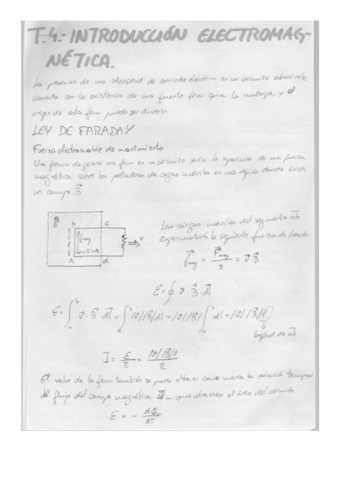 T.4.- INTRODUCCIÓN ELECTROMAG-
NÉTICA.
La presencia de una intensidad de corriente eléctrica en un circuito
con la existencia de una fuente fem que la mantenga y el
origen de esta fem puede ser diverso.
LEY DE FARADAY
Fuerza electromotriz de movimiento
Una forma de generar una fem en un circuito sería la de una fuerza
magnética sobre los portadores de cargas móviles en una región donde exista
un campo B⃗
B⃗
b c
a d
v
Las cargas móviles del segmento ab
experimentará la siguiente fuerza de Lorentz
E = ∮ v⃗ · B⃗ · dl⃗
longitud de ab
El valor de la fem también se puede obtener como menos la variación temporal
de flujo del campo magnético, que atraviesa el área del circuito